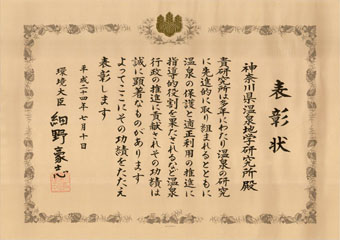 表彰状
神奈川県温泉地学研究所殿
貴研究所は多年にわたり温泉の研究
に先進的に取り組まれるとともに
温泉の保護と適正利用の推進に
指導的役割を果たされるなど温泉
行政の推進に貢献されその功績は
誠に顕著なものがあります
よってここにその功績をたたえ
表彰します
平成二十四年七月十日
環境大臣 細野豪志